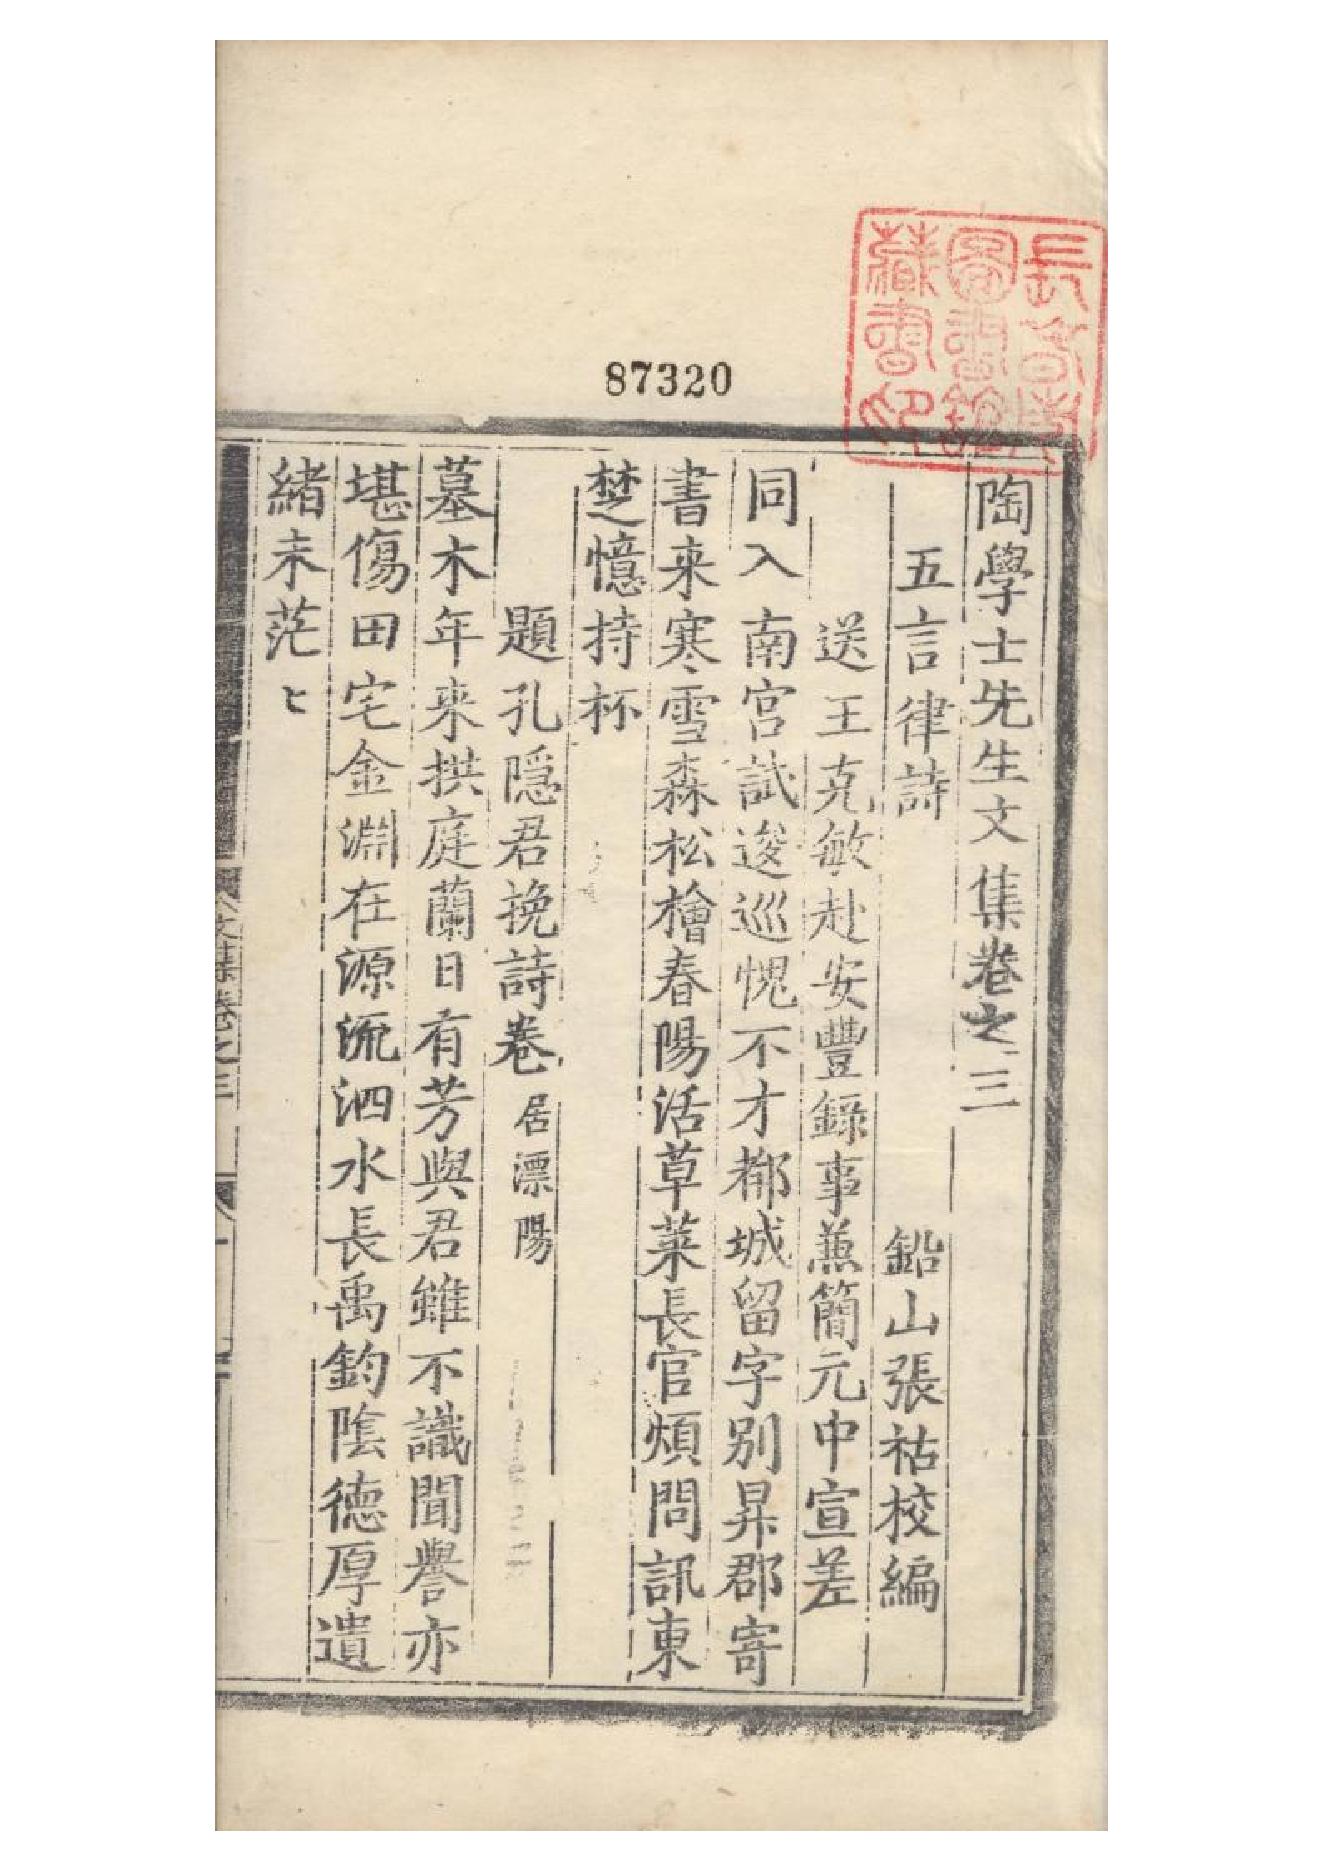 長春市
圖書館
藏書印
87320
陶學士先生文集卷之三
五言律詩
鉛山張祜校編
送王克敏赴安豐錄事兼簡元中宣差
同入南宮試逡巡愧不才都城留字別昇郡寄
書来寒雪森松檜春陽活草萊長官煩問訊東
楚憶持杯
題孔隱君挽詩卷居漂陽
墓木年来拱庭蘭日有芳與君雖不識聞譽亦
堪傷田宅金淵在源流泗水長禹鈞陰德厚遺
緒未茫〻
文集卷之三